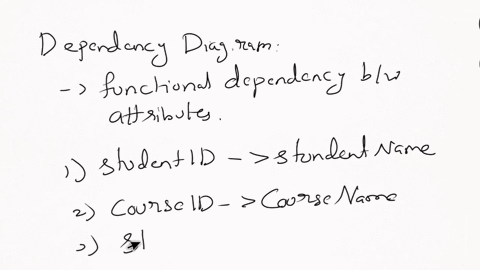 Dependency Diagram:
-> functional dependency b/w
attributes.
1) studentID -> stundentName
2) CourseID -> CourseName
3) st